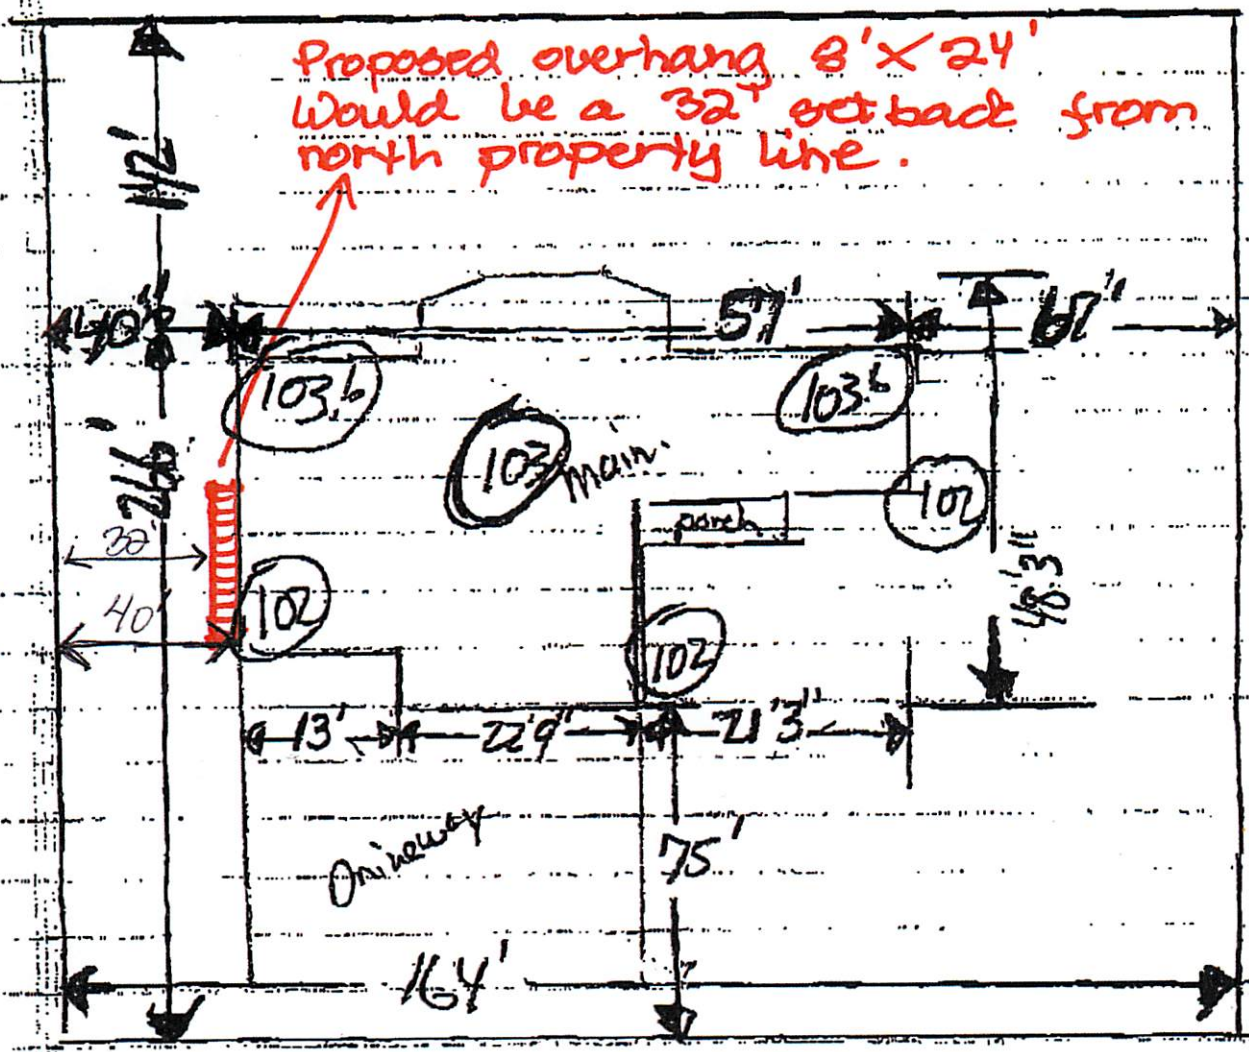 Proposed overhang 8' X 24'
Would be a 32' setback from
north property line.
112'
40'
57'
67'
103.6
103.6
103
main
266'
102
porch
32'
48'3"
40'
102
102
13'
22'9"
21'3"
75'
Driveway
164'